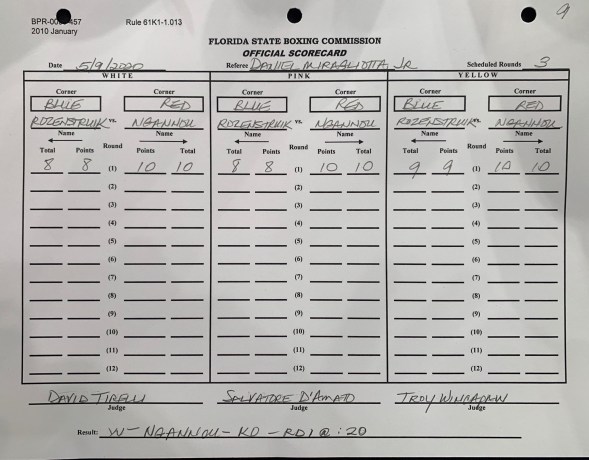 9
BPR-0 457 Rule 61K1-1.013
2010 January
FLORIDA STATE BOXING COMMISSION
OFFICIAL SCORECARD
Date 5/9/2020 Referee DANIEL MIRAGLIOTTA JR Scheduled Rounds 3
WHITE PINK YELLOW
Corner Corner Corner Corner Corner Corner
BLUE RED BLUE RED BLUE RED
ROZENSTRUIK vs. NGANNOU ROZENSTRUIK vs. NGANNOU ROZENSTRUIK vs. NGANNOU
Name Name Name Name Name Name
Total Points Round Points Total Total Points Round Points Total Total Points Round Points Total
8 8 (1) 10 10 8 8 (1) 10 10 9 9 (1) 10 10
(2) (2) (2)
(3) (3) (3)
(4) (4) (4)
(5) (5) (5)
(6) (6) (6)
(7) (7) (7)
(8) (8) (8)
(9) (9) (9)
(10) (10) (10)
(11) (11) (11)
(12) (12) (12)
DAVID TIRELLI SALVATORE D'AMATO TROY WINCAPAW
Judge Judge Judge
Result: W - NGANNOU - KO - RD1 @ :20